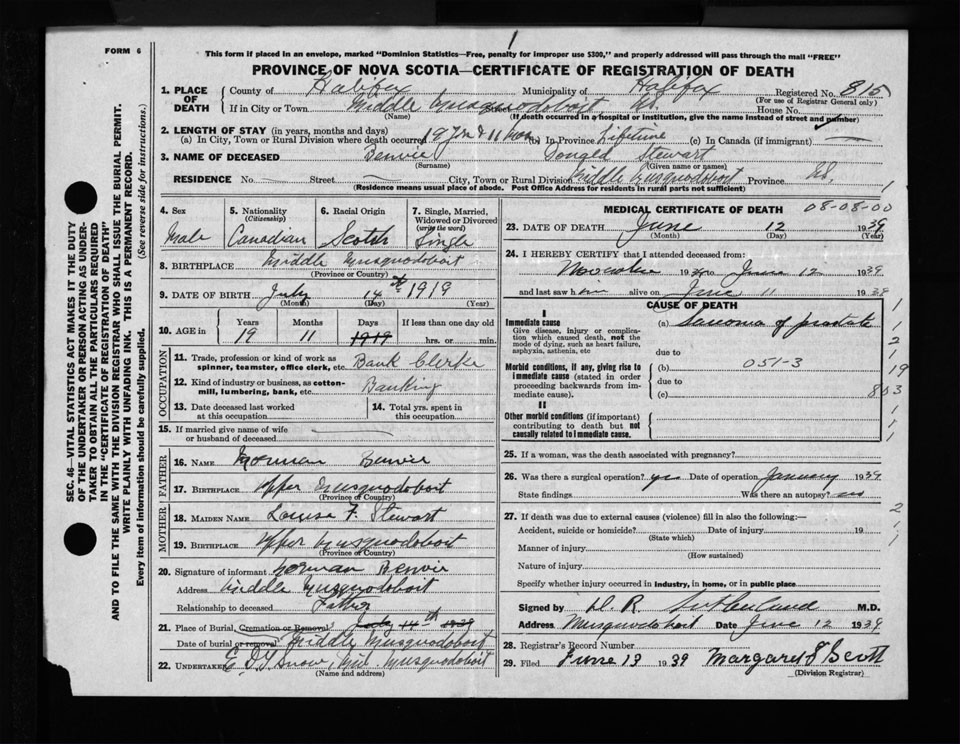 FORM 6
1
This form if placed in an envelope, marked "Dominion Statistics—Free, penalty for improper use $300," and properly addressed will pass through the mail "FREE"
PROVINCE OF NOVA SCOTIA—CERTIFICATE OF REGISTRATION OF DEATH
SEC. 46—VITAL STATISTICS ACT MAKES IT THE DUTY
OF THE UNDERTAKER OR PERSON ACTING AS UNDER-
TAKER TO OBTAIN ALL THE PARTICULARS REQUIRED
IN THE "CERTIFICATE OF REGISTRATION OF DEATH"
AND TO FILE THE SAME WITH THE DIVISION REGISTRAR WHO SHALL ISSUE THE BURIAL PERMIT.
WRITE PLAINLY WITH UNFADING INK. THIS IS A PERMANENT RECORD.
Every item of information should be carefully supplied. (See reverse side for instructions.)
1. PLACE OF DEATH County of Halifax Municipality of Halifax Registered No. 815
(For use of Registrar General only)
If in City or Town Middle Musquodoboit NS. House No.
(Name) (If death occurred in a hospital or institution, give the name instead of street and number)
2. LENGTH OF STAY (in years, months and days)
(a) In City, Town or Rural Division where death occurred 19 yrs & 11 mos (b) In Province Lifetime (c) In Canada (if immigrant)
3. NAME OF DECEASED Benvie Donald Stewart
(Surname) (Given name or names)
RESIDENCE No. Street City, Town or Rural Division Middle Musquodoboit Province NS.
(Residence means usual place of abode. Post Office Address for residents in rural parts not sufficient)
4. Sex Male
5. Nationality (Citizenship) Canadian
6. Racial Origin Scotch
7. Single, Married, Widowed or Divorced (write the word) Single
8. BIRTHPLACE Middle Musquodoboit
(Province or Country)
9. DATE OF BIRTH July 14th 1919
(Month) (Day) (Year)
10. AGE in Years Months Days If less than one day
19 11 1919 hrs. or min.
OCCUPATION
11. Trade, profession or kind of work as spinner, teamster, office clerk, etc. Bank Clerke
12. Kind of industry or business, as cotton-mill, lumbering, bank, etc. Banking
13. Date deceased last worked at this occupation
14. Total yrs. spent in this occupation
15. If married give name of wife or husband of deceased
FATHER
16. NAME Norman Benvie
17. BIRTHPLACE Upper Musquodoboit
(Province or Country)
MOTHER
18. MAIDEN NAME Louisa F. Stewart
19. BIRTHPLACE Upper Musquodoboit
(Province or Country)
20. Signature of informant Norman Benvie
Address Middle Musquodoboit
Relationship to deceased Father
21. Place of Burial, Cremation or Removal July 14th 1939
Date of burial or removal Middle Musquodoboit
22. UNDERTAKER Snow, Mid. Musquodoboit
(Name and address)
MEDICAL CERTIFICATE OF DEATH 08-08-00
23. DATE OF DEATH June 12 1939
(Month) (Day) (Year)
24. I HEREBY CERTIFY that I attended deceased from:
19 to June 12 1939
and last saw him alive on June 11 1939
CAUSE OF DEATH
I
Immediate cause
Give disease, injury or complication which caused death, not the mode of dying, such as heart failure, asphyxia, asthenia, etc
(a) of prostate
due to
Morbid conditions, if any, giving rise to immediate cause (stated in order proceeding backwards from immediate cause).
(b) 051-3
due to
(c) 803
II
Other morbid conditions (if important) contributing to death but not causally related to immediate cause.
1
1
2
1
19
1
1
1
25. If a woman, was the death associated with pregnancy?
26. Was there a surgical operation? yes Date of operation January 1939
State findings Was there an autopsy? no
27. If death was due to external causes (violence) fill in also the following:— 2
Accident, suicide or homicide? Date of injury 19 1
(State which) 1
Manner of injury
(How sustained)
Nature of injury
Specify whether injury occurred in industry, in home, or in public place
Signed by D. R. Sutherland M.D.
Address Musquodoboit Date June 12 1939
28. Registrar's Record Number
29. Filed June 13 1939 Margaret Scott
(Division Registrar)